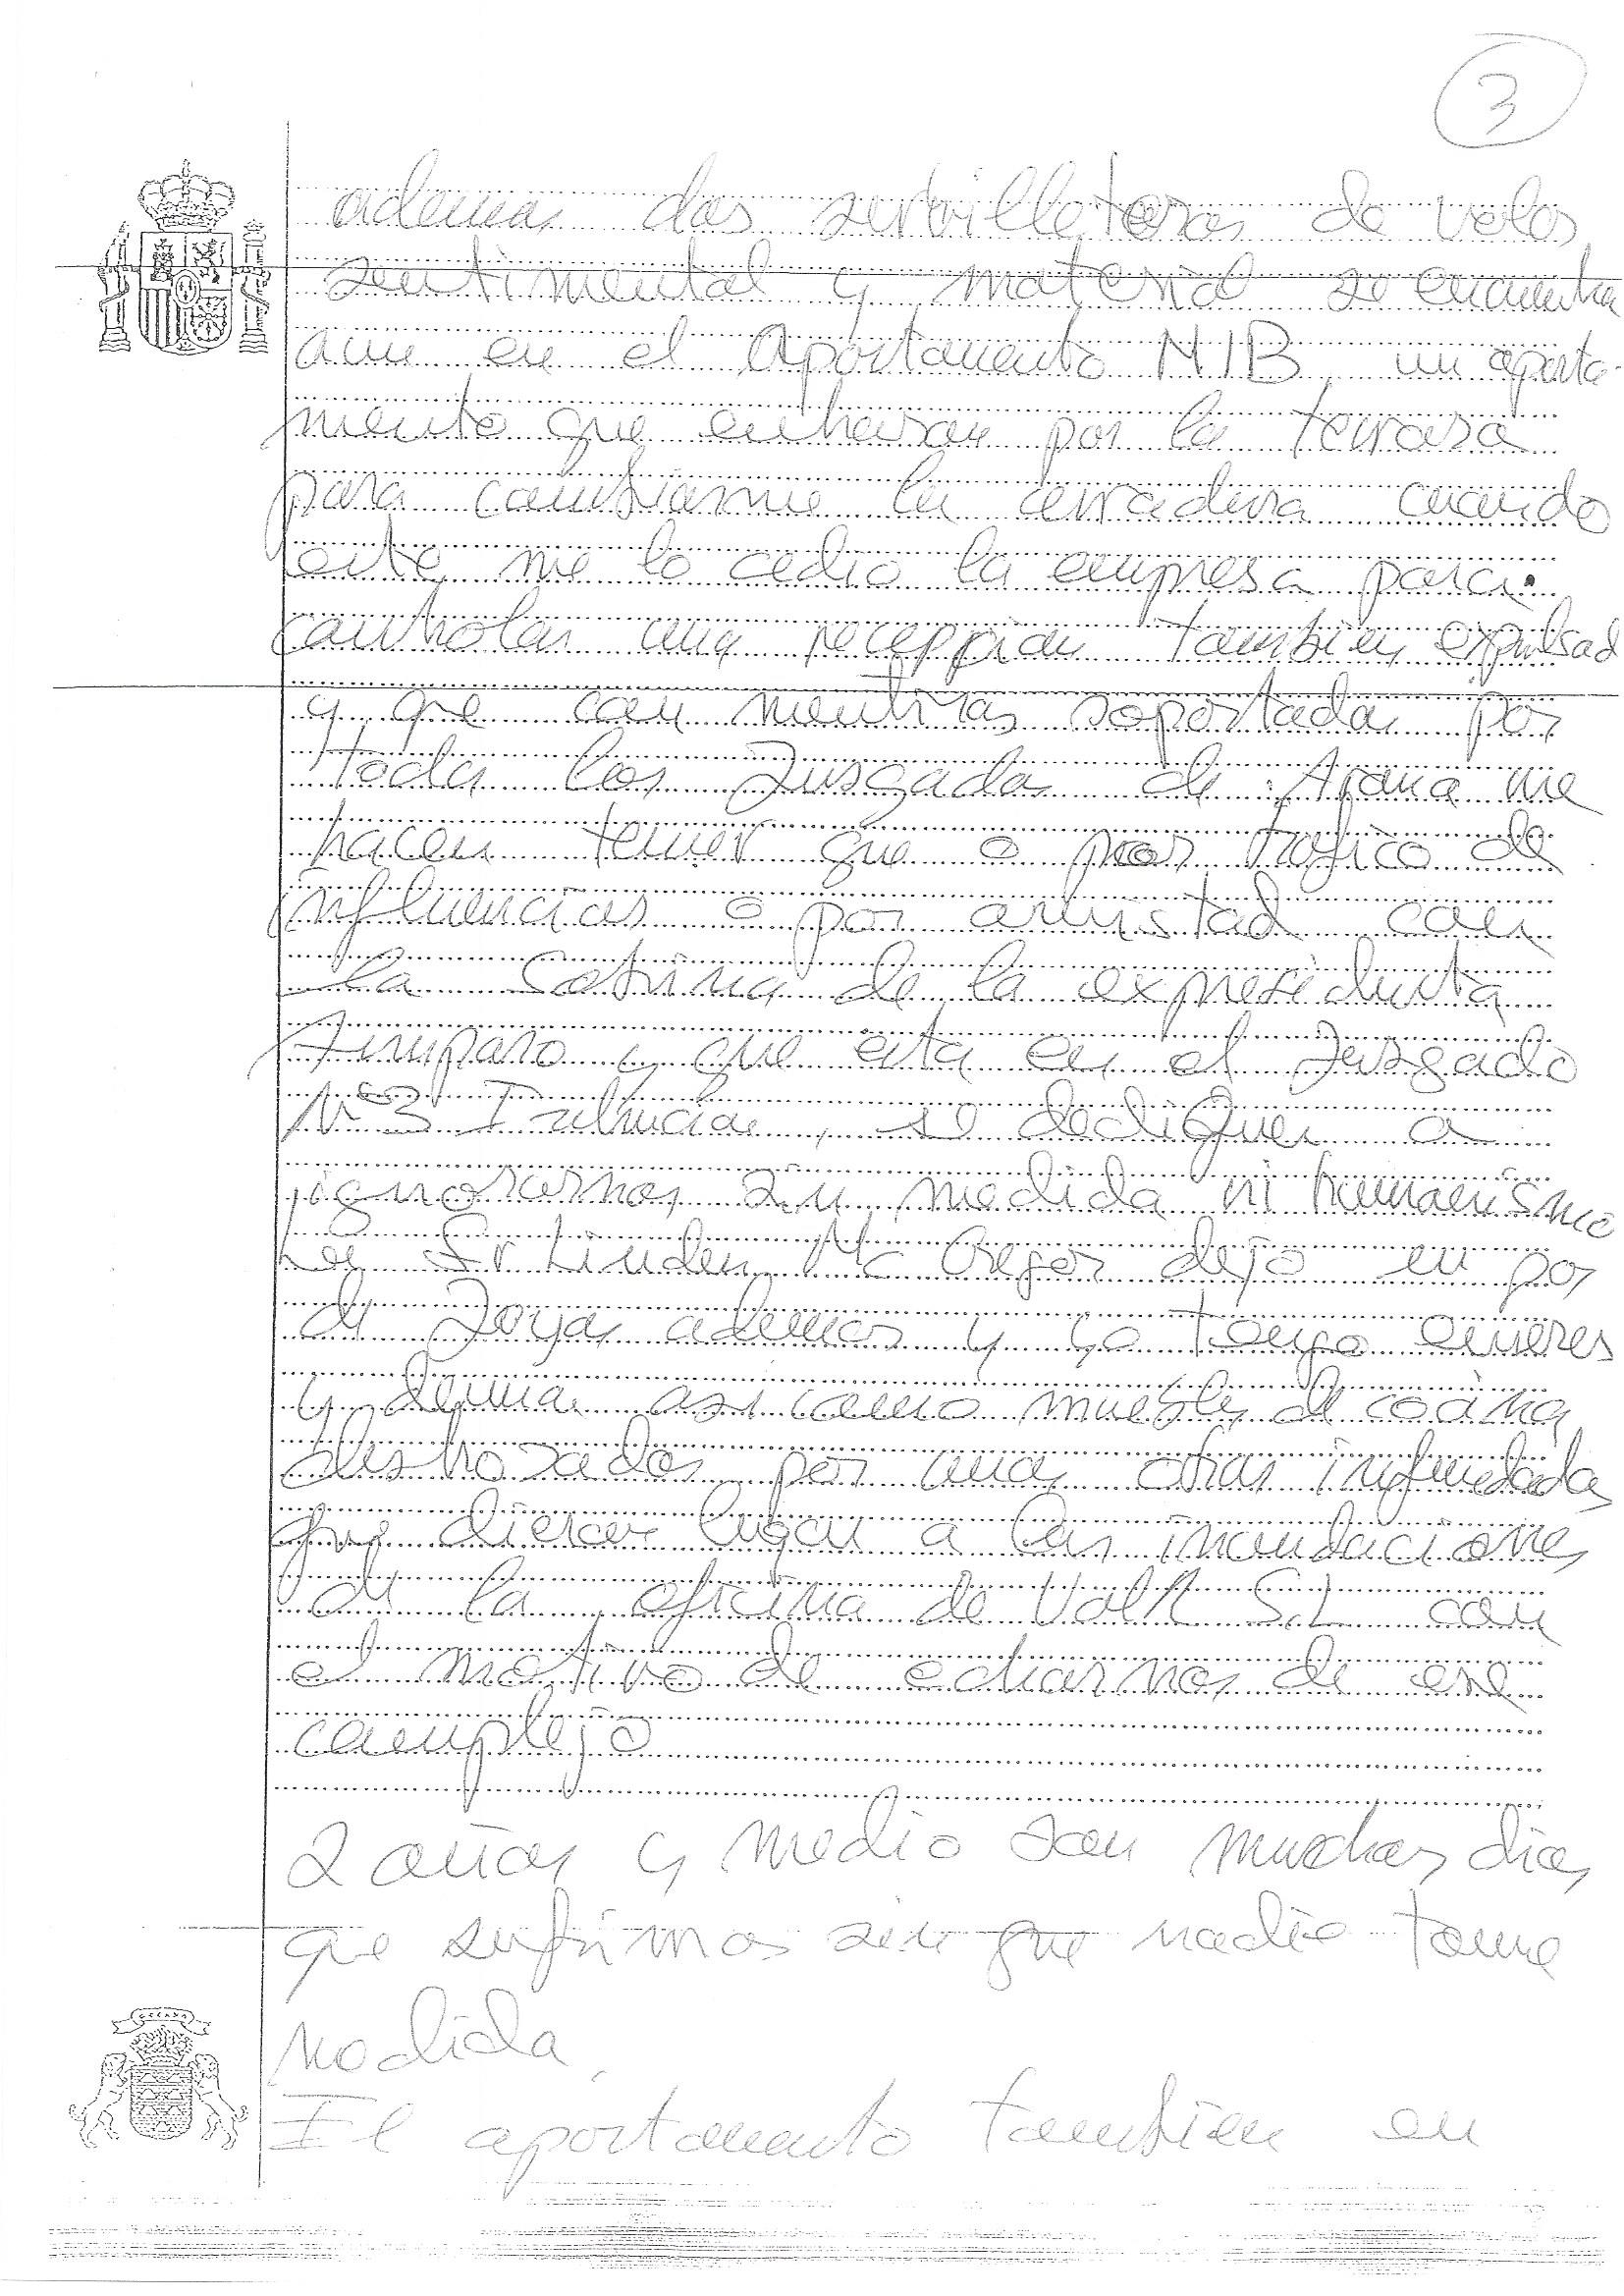 3
ademas dos servilleteros de valor
sentimental y material se encuentra
aun en el Apartamento M1B, un aparta-
mento que entraron por la terrasa
para cambiarme la cerradura cuando
este me lo cedio la empresa para
controlar una recepcion tambien expulsad
y que con mentiras soportadas por
todos los Juzgados de Arona me
hacen temer que o por trafico de
influencias o por amistad con
la Sobrina de la expresidenta
Amparo y que esta en el Juzgado
Nº3 Instrucion, se dediquen a
ignorarnos sin medida ni humanismo
Sr Linden Mc Gregor dejo
de Joyas ademas y yo tengo enseres
y demas asi como muebles de cocina
destrozados por unas otras
que dieron lugar a las inundaciones
de la oficina de S.L con
el motivo de echarnos de ese
complejo
2 años y medio son muchos dias
que sufrimos sin que nadie tome
medida
El apartamento tambien en